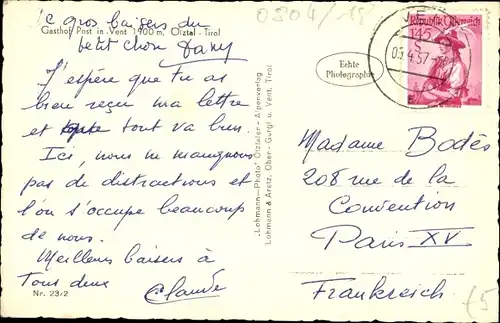 Ic gros baisers du
petit chou Dany
Gasthof Post in Vent 1900 m, Ötztal - Tirol
J'espère que tu as
bien reçu ma lettre
et que tout va bien.
Ici, nous ne manquons
pas de distractions et
l'on s'occupe beaucoup
de nous.
Meilleurs baisers à
tous deux
Claude
Nr. 23/2
"Lohmann-Photo" Ötztaler - Alpenverlag
Lohmann & Aretz, Ober-Gurgl u. Vent, Tirol
0804/18
Echte
Photographie
VENT
Republik Österreich
1.45
S
Madame Bodès
208 rue de la
Convention
Paris XV
Frankreich